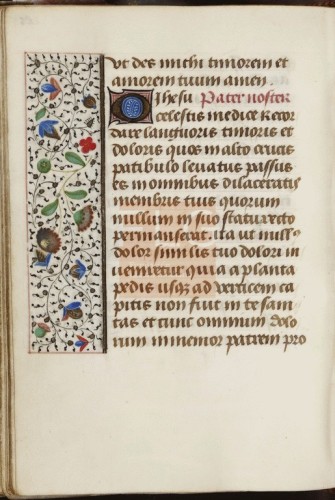 ut des michi timorem et
amorem tuum amen.
O Jhesu Pater noster
celestis medice Recor
dare languoris timoris et
doloris quos in alto crucis
patibulo levatus passus
es in omnibus dilaceratis
membris tuis quorum
nullum in suo statu recto
permanserat. ita ut nullus
dolor similis tuo dolori in
veniretur quia a planta
pedis usque ad verticem ca
pitis non fuit in te sani
tas et tunc omnium dolo
rum immemor patrem pro